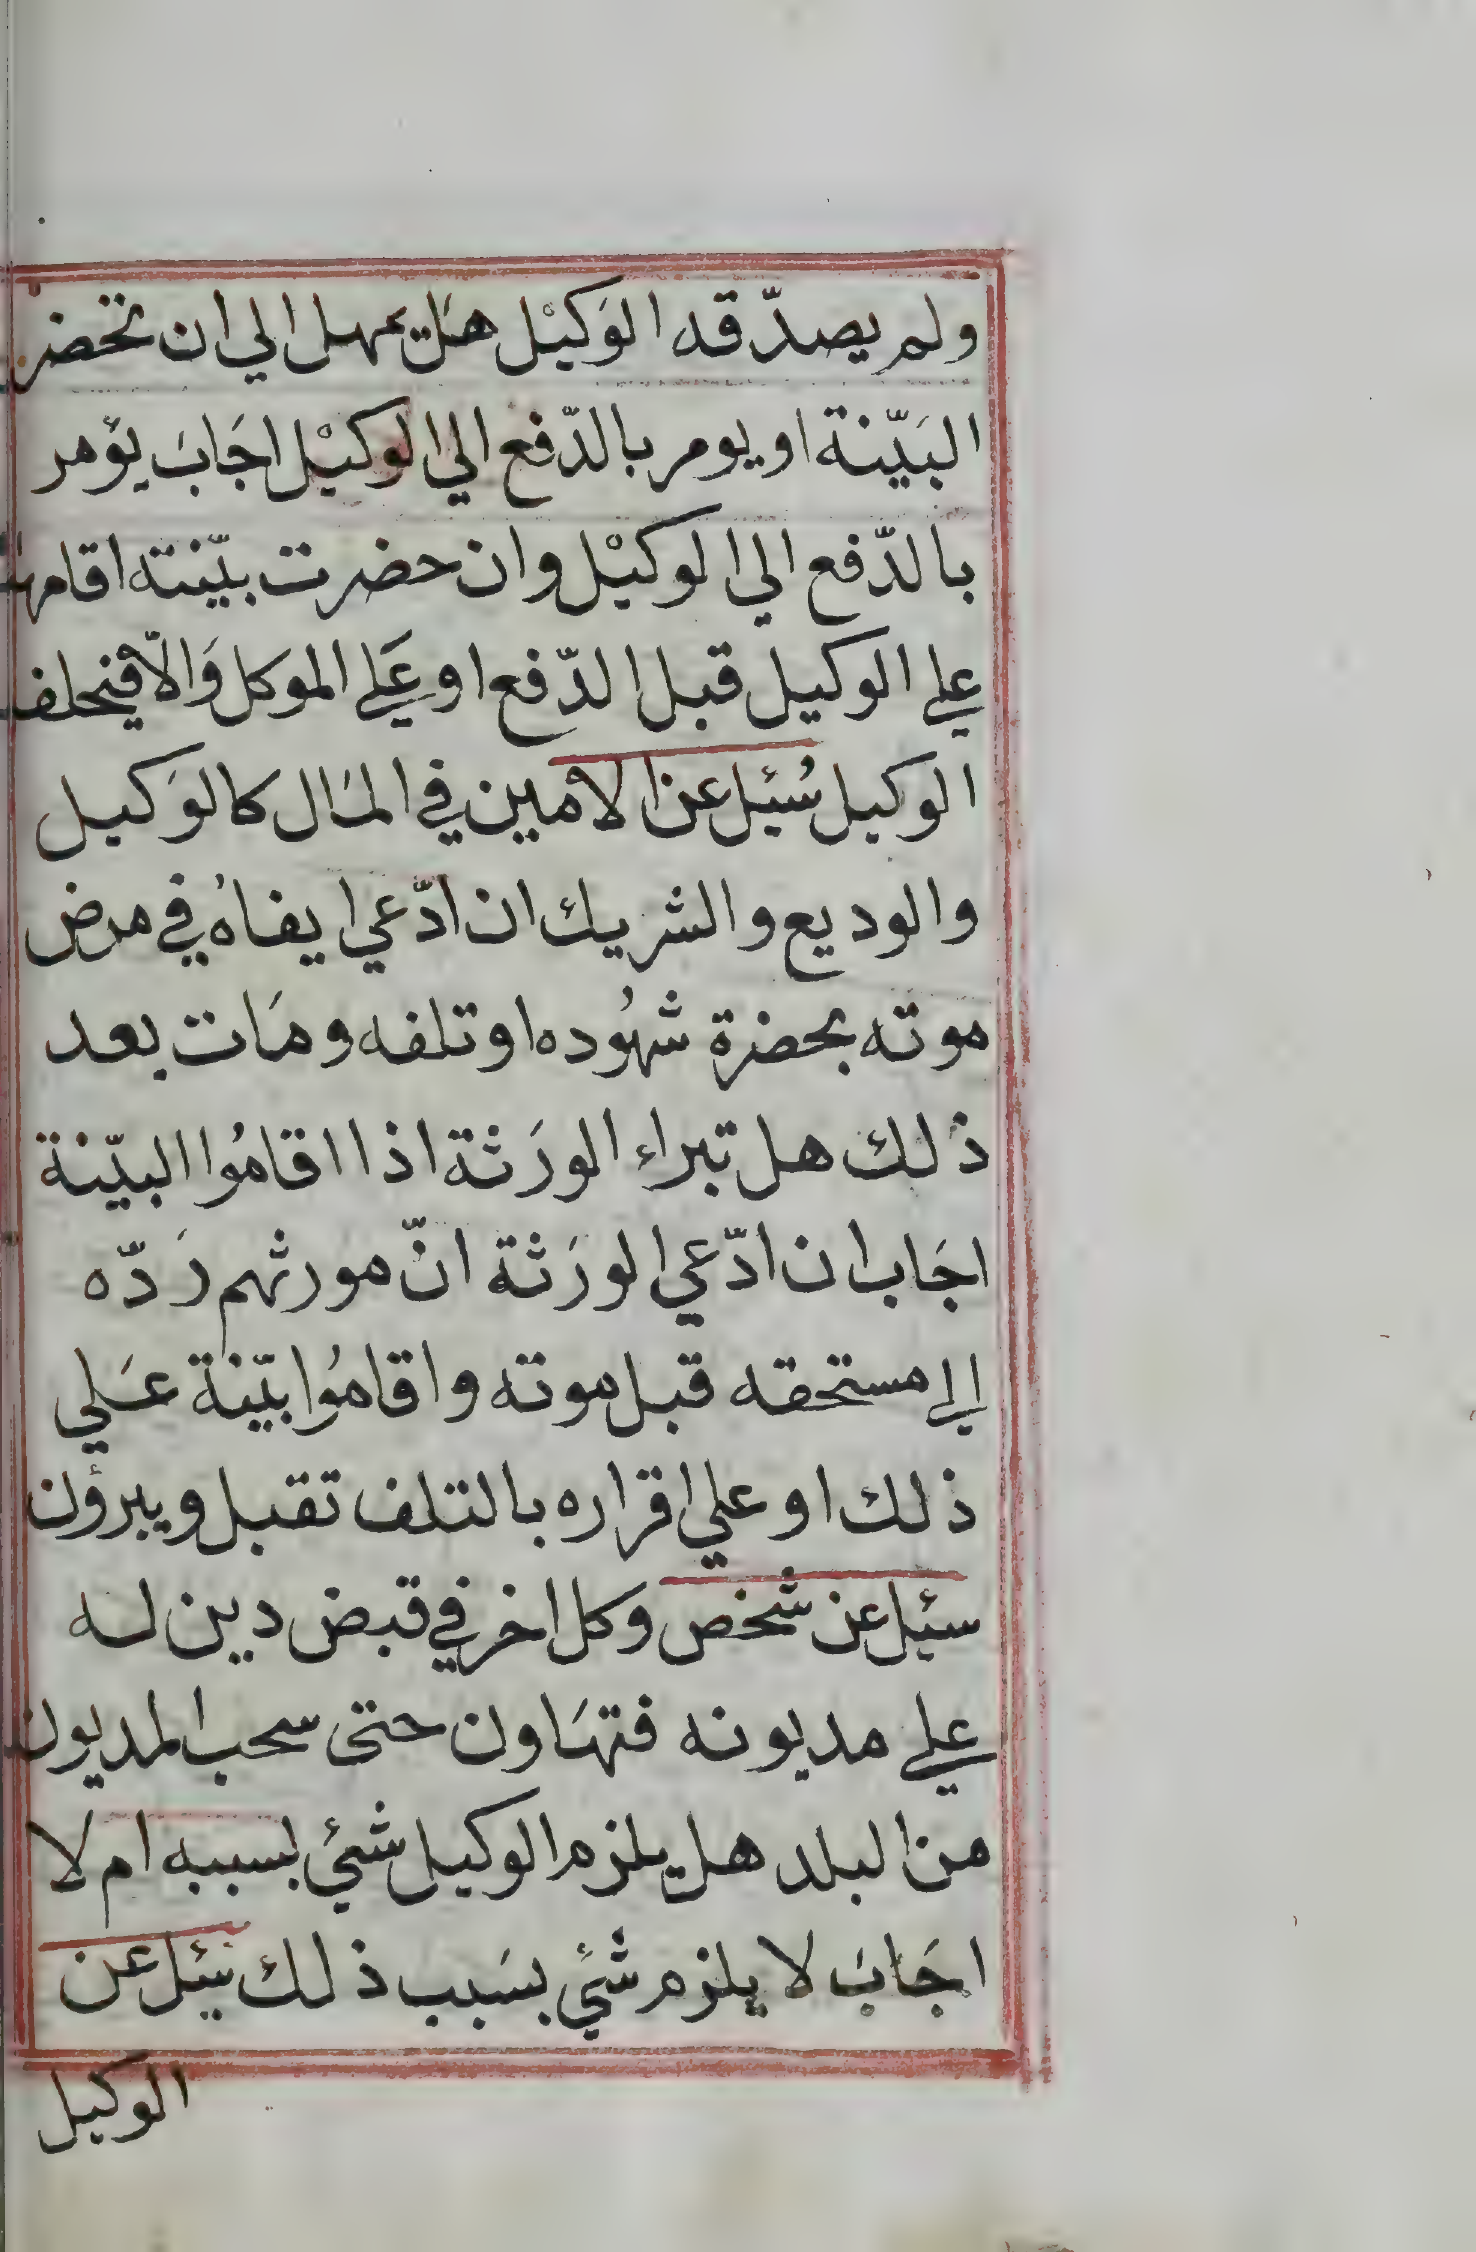 ولم يصدّقه الوَكيْل هَل يمهل الي ان تحضر
البَيّنة او يومر بالدّفع الي الوكيْل اجَابَ يؤمر
بالدّفع الي الوكيْل وان حضرت بيّنته اقامها
علي الوكيل قبل الدّفع او عَلي الموكل وَالاّ فيحلف
الوكيل سُئيل عن الامين في المَال كالوَكيل
والوديع والشريك ان ادّعي ايفاهُ في مرض
موته بحضرة شهُوده او تلفه ومَات بعد
ذلك هل تبراء الورَثة اذا اقامُوا البيّنة
اجَاب ان ادّعي الورَثة انّ مورثهم رَدّه
الي مستحقه قبل موته واقامُوا بيّنة عَلي
ذلك او علي اقراره بالتلف تقبل ويبرؤن
سئيل عن شخص وكل اخر في قبض دين له
علي مديونه فتهَاون حتى سحب المديون
من البلد هل يلزم الوكيل شئي بسببه ام لا
اجَابَ لا يلزم شئي بسَبب ذلك سئيل عن
الوكيل